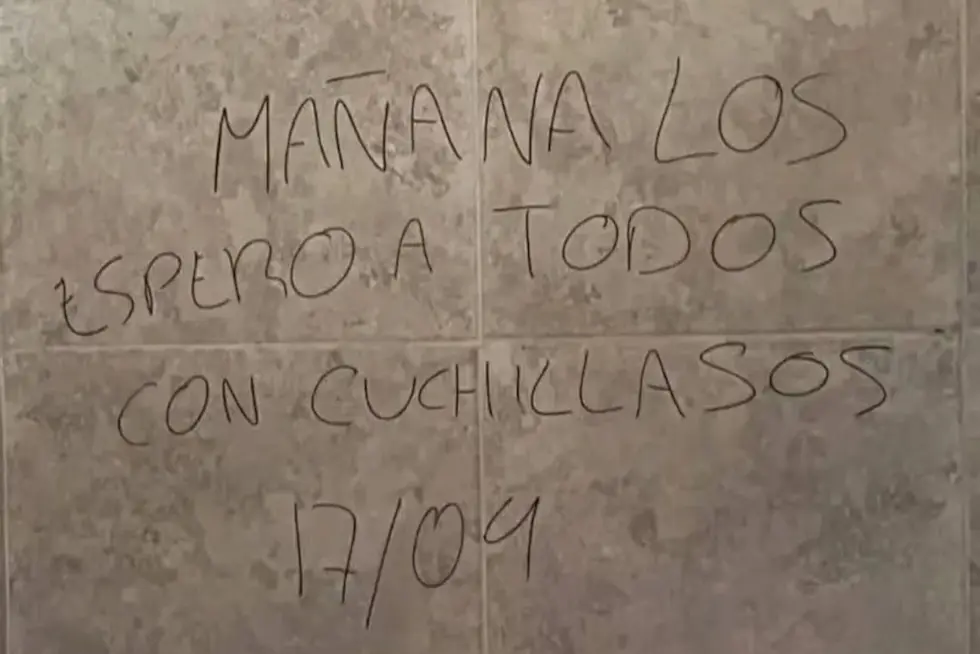 MAÑANA LOS
ESPERO A TODOS
CON CUCHILLASOS
17/09